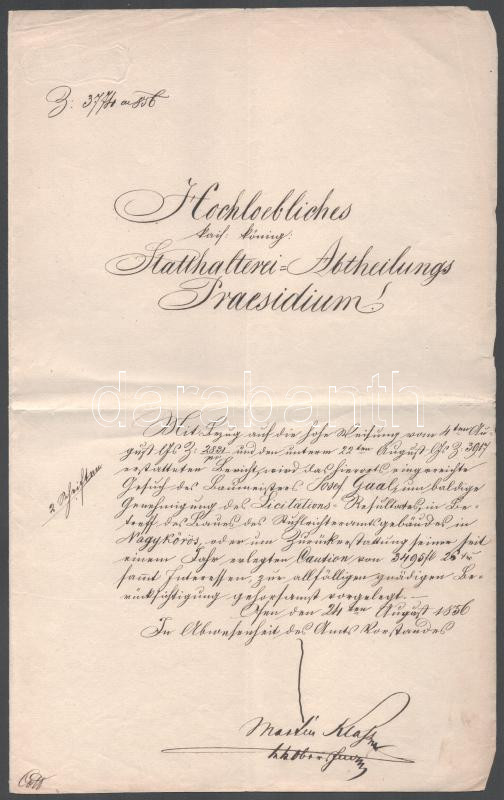 Z: 37
Hochloebliches
kais: könig:
Statthalterei=Abtheilungs
Praesidium!
Mit Bezug auf die hohe Weisung vom 4ten Au-
gust l/Js Z: 2821 und den unterm 22ten August l/Js Z: 3917
erstatteten Bericht, wird das hierorts eingereichte
Gesuch des Baumeisters Josef Gaal, um baldige
Genehmigung des Licitations-Resultates, in Be-
treff des Baues des Stuhlrichteramtsgebäudes in
Nagykörös, oder um Zurückerstattung seiner seit
einem Jahr erlegten Caution von 3495f
sammt Interessen, zur allfälligen gnädigen Be-
rücksichtigung gehorsamst vorgelegt.-
Ofen den 24ten August 1856
In Abwesenheit des Amts Vorstandes
2 Schriften
Martin
darabanth